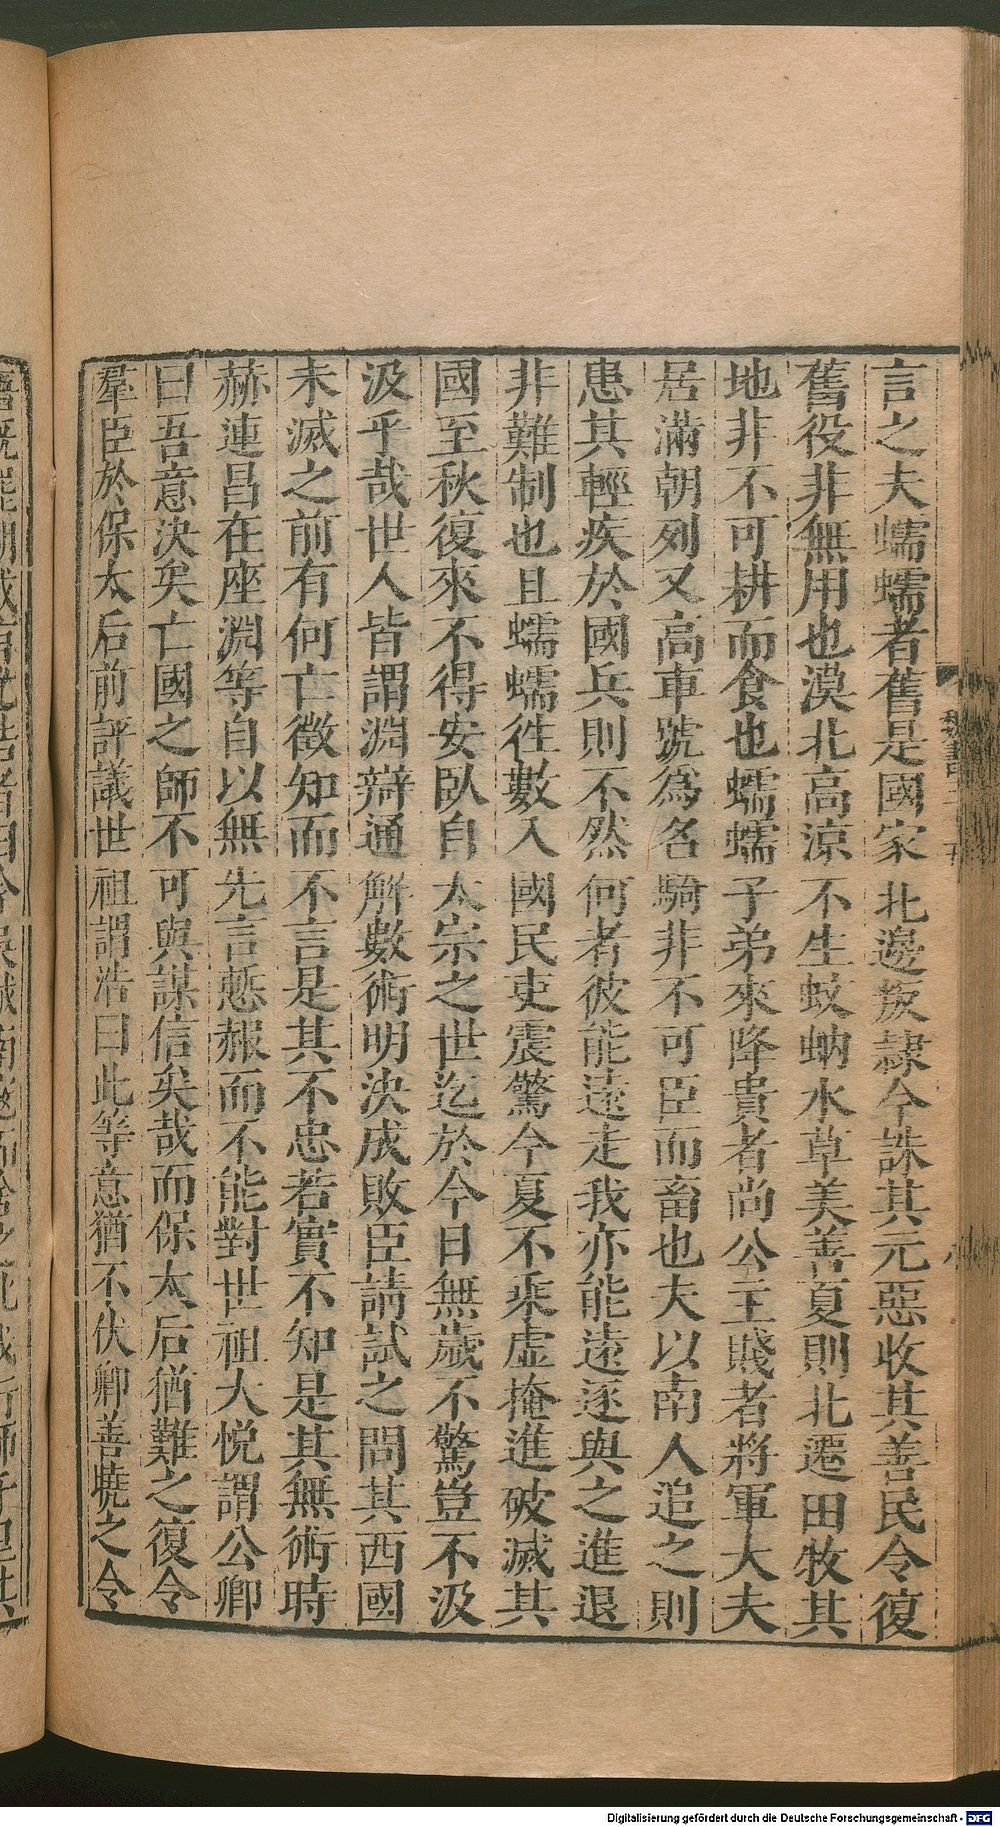 言之夫蠕蠕者舊是國家北邊叛隷今誅其元惡收其善民令復
舊役非無用也漠北高涼不生蚊蚋水草美善夏則北遷田牧其
地非不可耕而食也蠕蠕子弟來降貴者尚公主賤者將軍大夫
居滿朝列又高車號為名騎非不可臣而畜也夫以南人追之則
患其輕疾於國兵則不然何者彼能遠走我亦能遠逐與之進退
非難制也且蠕蠕往數入國民吏震驚今夏不乘虛掩進破滅其
國至秋復來不得安臥自太宗之世迄於今日無歲不驚豈不汲
汲乎哉世人皆謂淵辯通解數術明決成敗臣請試之問其西國
未滅之前有何亡徵知而不言是其不忠若實不知是其無術時
赫連昌在座淵等自以無先言慙赧而不能對世祖大悅謂公卿
曰吾意決矣亡國之師不可與謀信矣哉而保太后猶難之復令
羣臣於保太后前評議世祖謂浩曰此等意猶不伏卿善曉之令
Digitalisierung gefördert durch die Deutsche Forschungsgemeinschaft - DFG